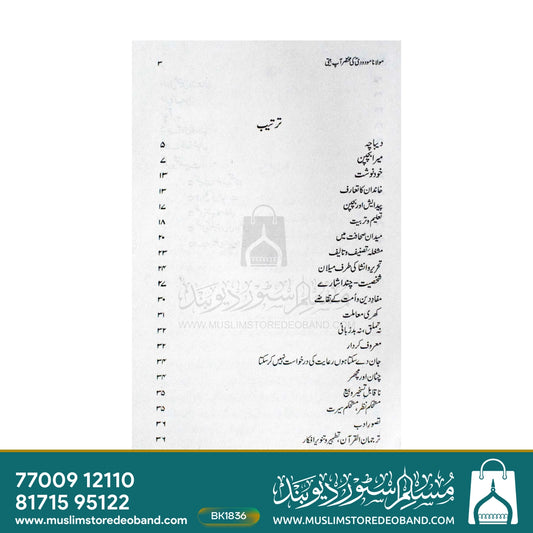 مولانا مودودیؒ کی مختصر آپ بیتی ۳
ترتیب
دیباچہ ۵
میرا بچپن ۷
خود نوشت ۱۳
خاندان کا تعارف ۱۳
پیدایش اور بچپن ۱۷
تعلیم و تربیت ۱۸
میدان صحافت میں ۲۰
مشغلۂ تصنیف و تالیف ۲۳
تحریر و انشا کی طرف میلان ۲۴
شخصیت - چند اشارے ۲۷
مفاد دین و اُمت کے تقاضے ۳۰
کھری معاملت ۳۱
نہ تملق، نہ بدزبانی ۳۲
معروف کردار ۳۲
جان دے سکتا ہوں رعایت کی درخواست نہیں کر سکتا ۳۴
چٹان اور مچھر ۳۴
ناقابل تسخیر و بیع ۳۵
مستحکم نظر، مستحکم سیرت ۳۵
تصور ادب ۳۶
ترجمان القرآن، تطہیر و تنویر افکار ۳۶
مسلم سٹور دیوبند
WWW.MUSLIMSTOREDEOBAND.COM
77009 12110
81715 95122
www.muslimstoredeoband.com
BK1836
مسلم سٹور دیوبند
WWW.MUSLIMSTOREDEOBAND.COM